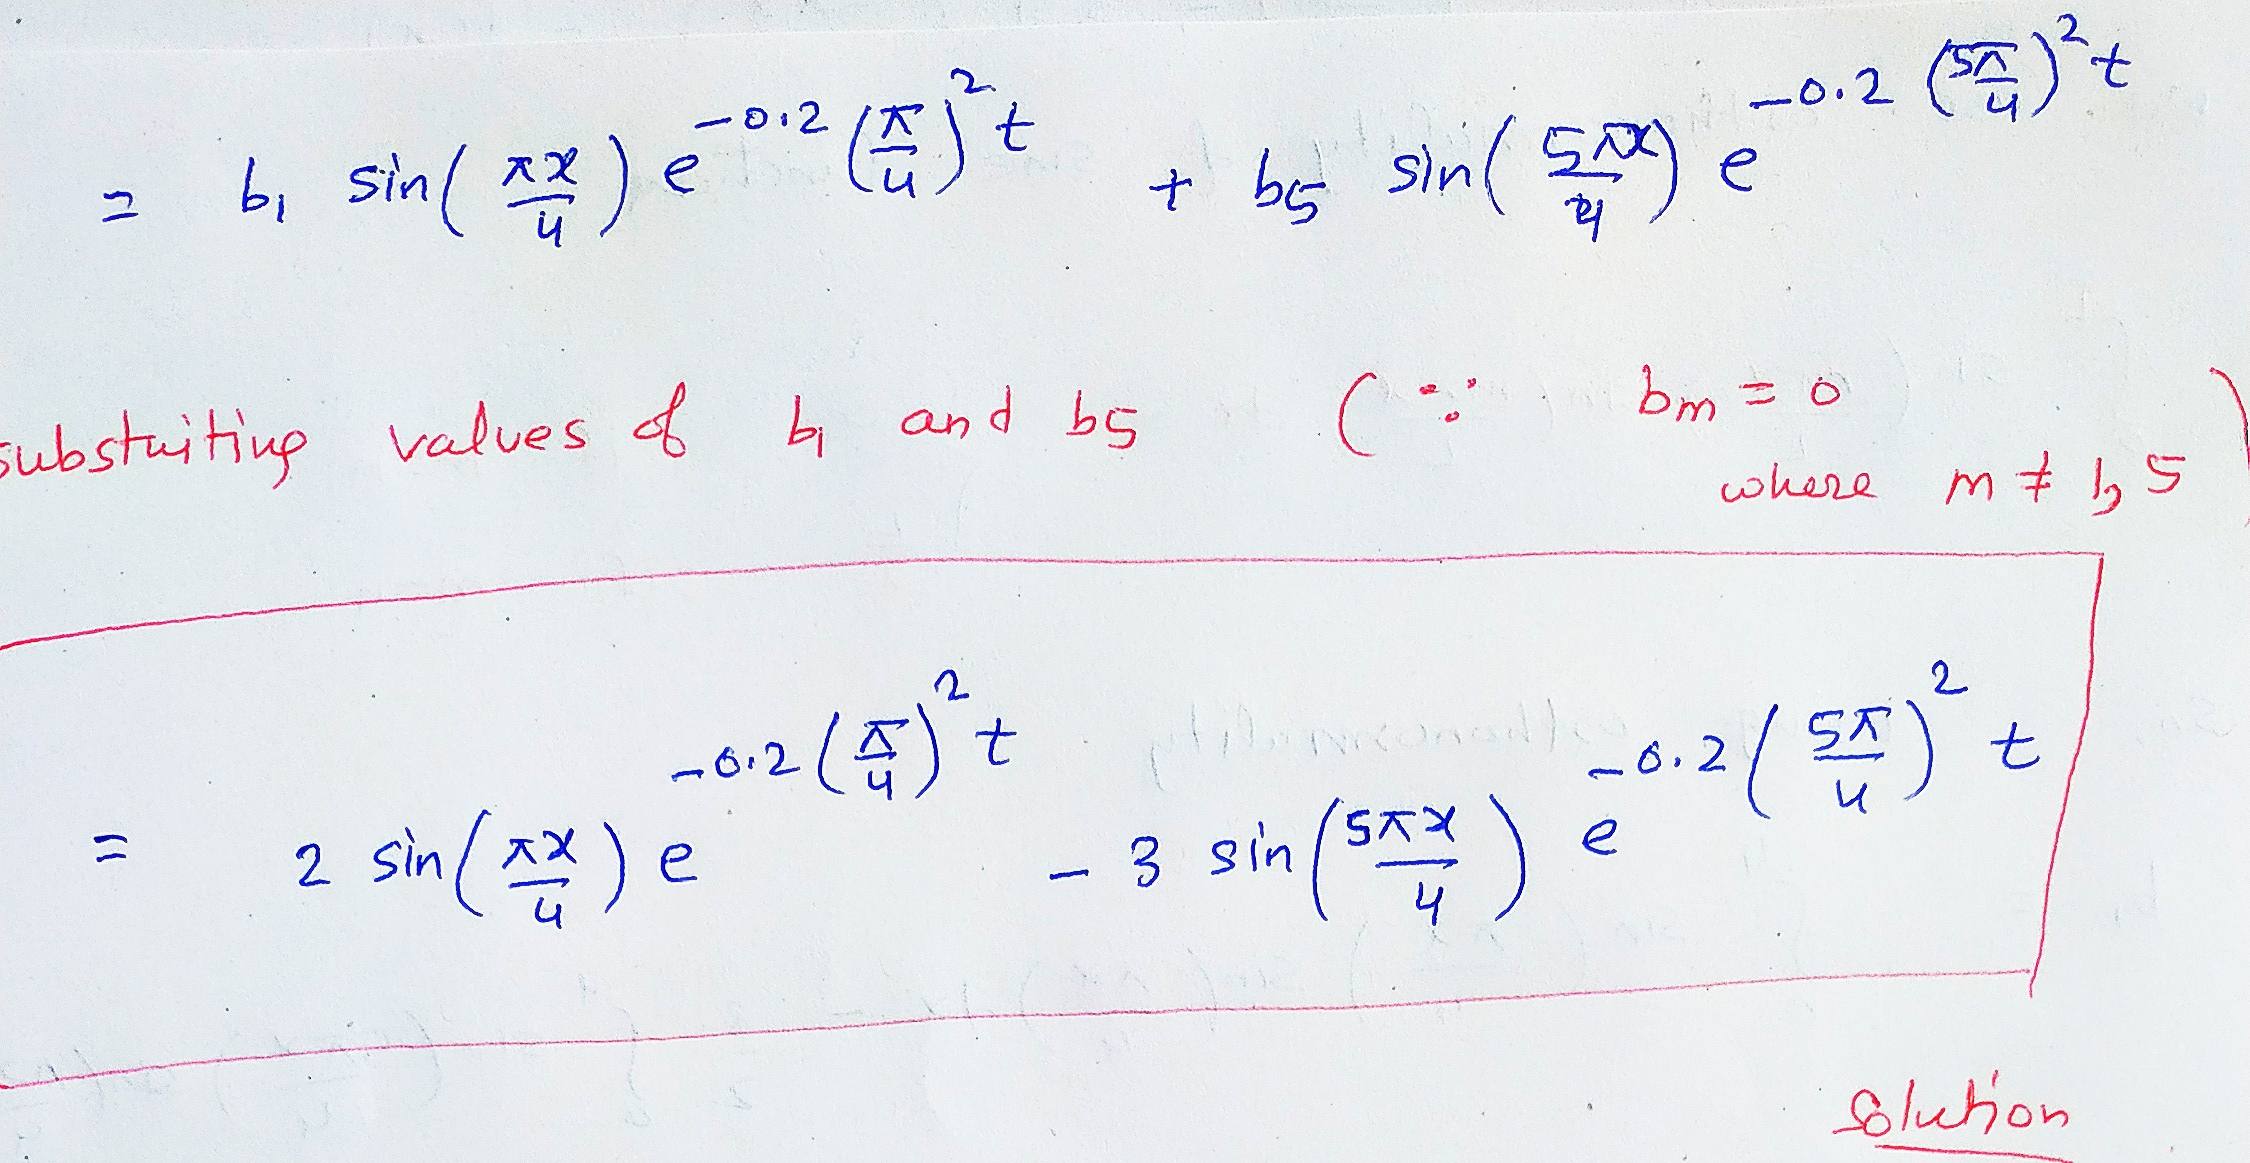 = b₁ sin(πx/4) e^{-0.2 (π/4)² t} + b5 sin(5πx/4) e^{-0.2 (5π/4)² t}
substuiting values of b₁ and b5 (∵ bm = 0
where m ≠ 1, 5)
= 2 sin(πx/4) e^{-0.2 (π/4)² t} - 3 sin(5πx/4) e^{-0.2 (5π/4)² t}
Solution